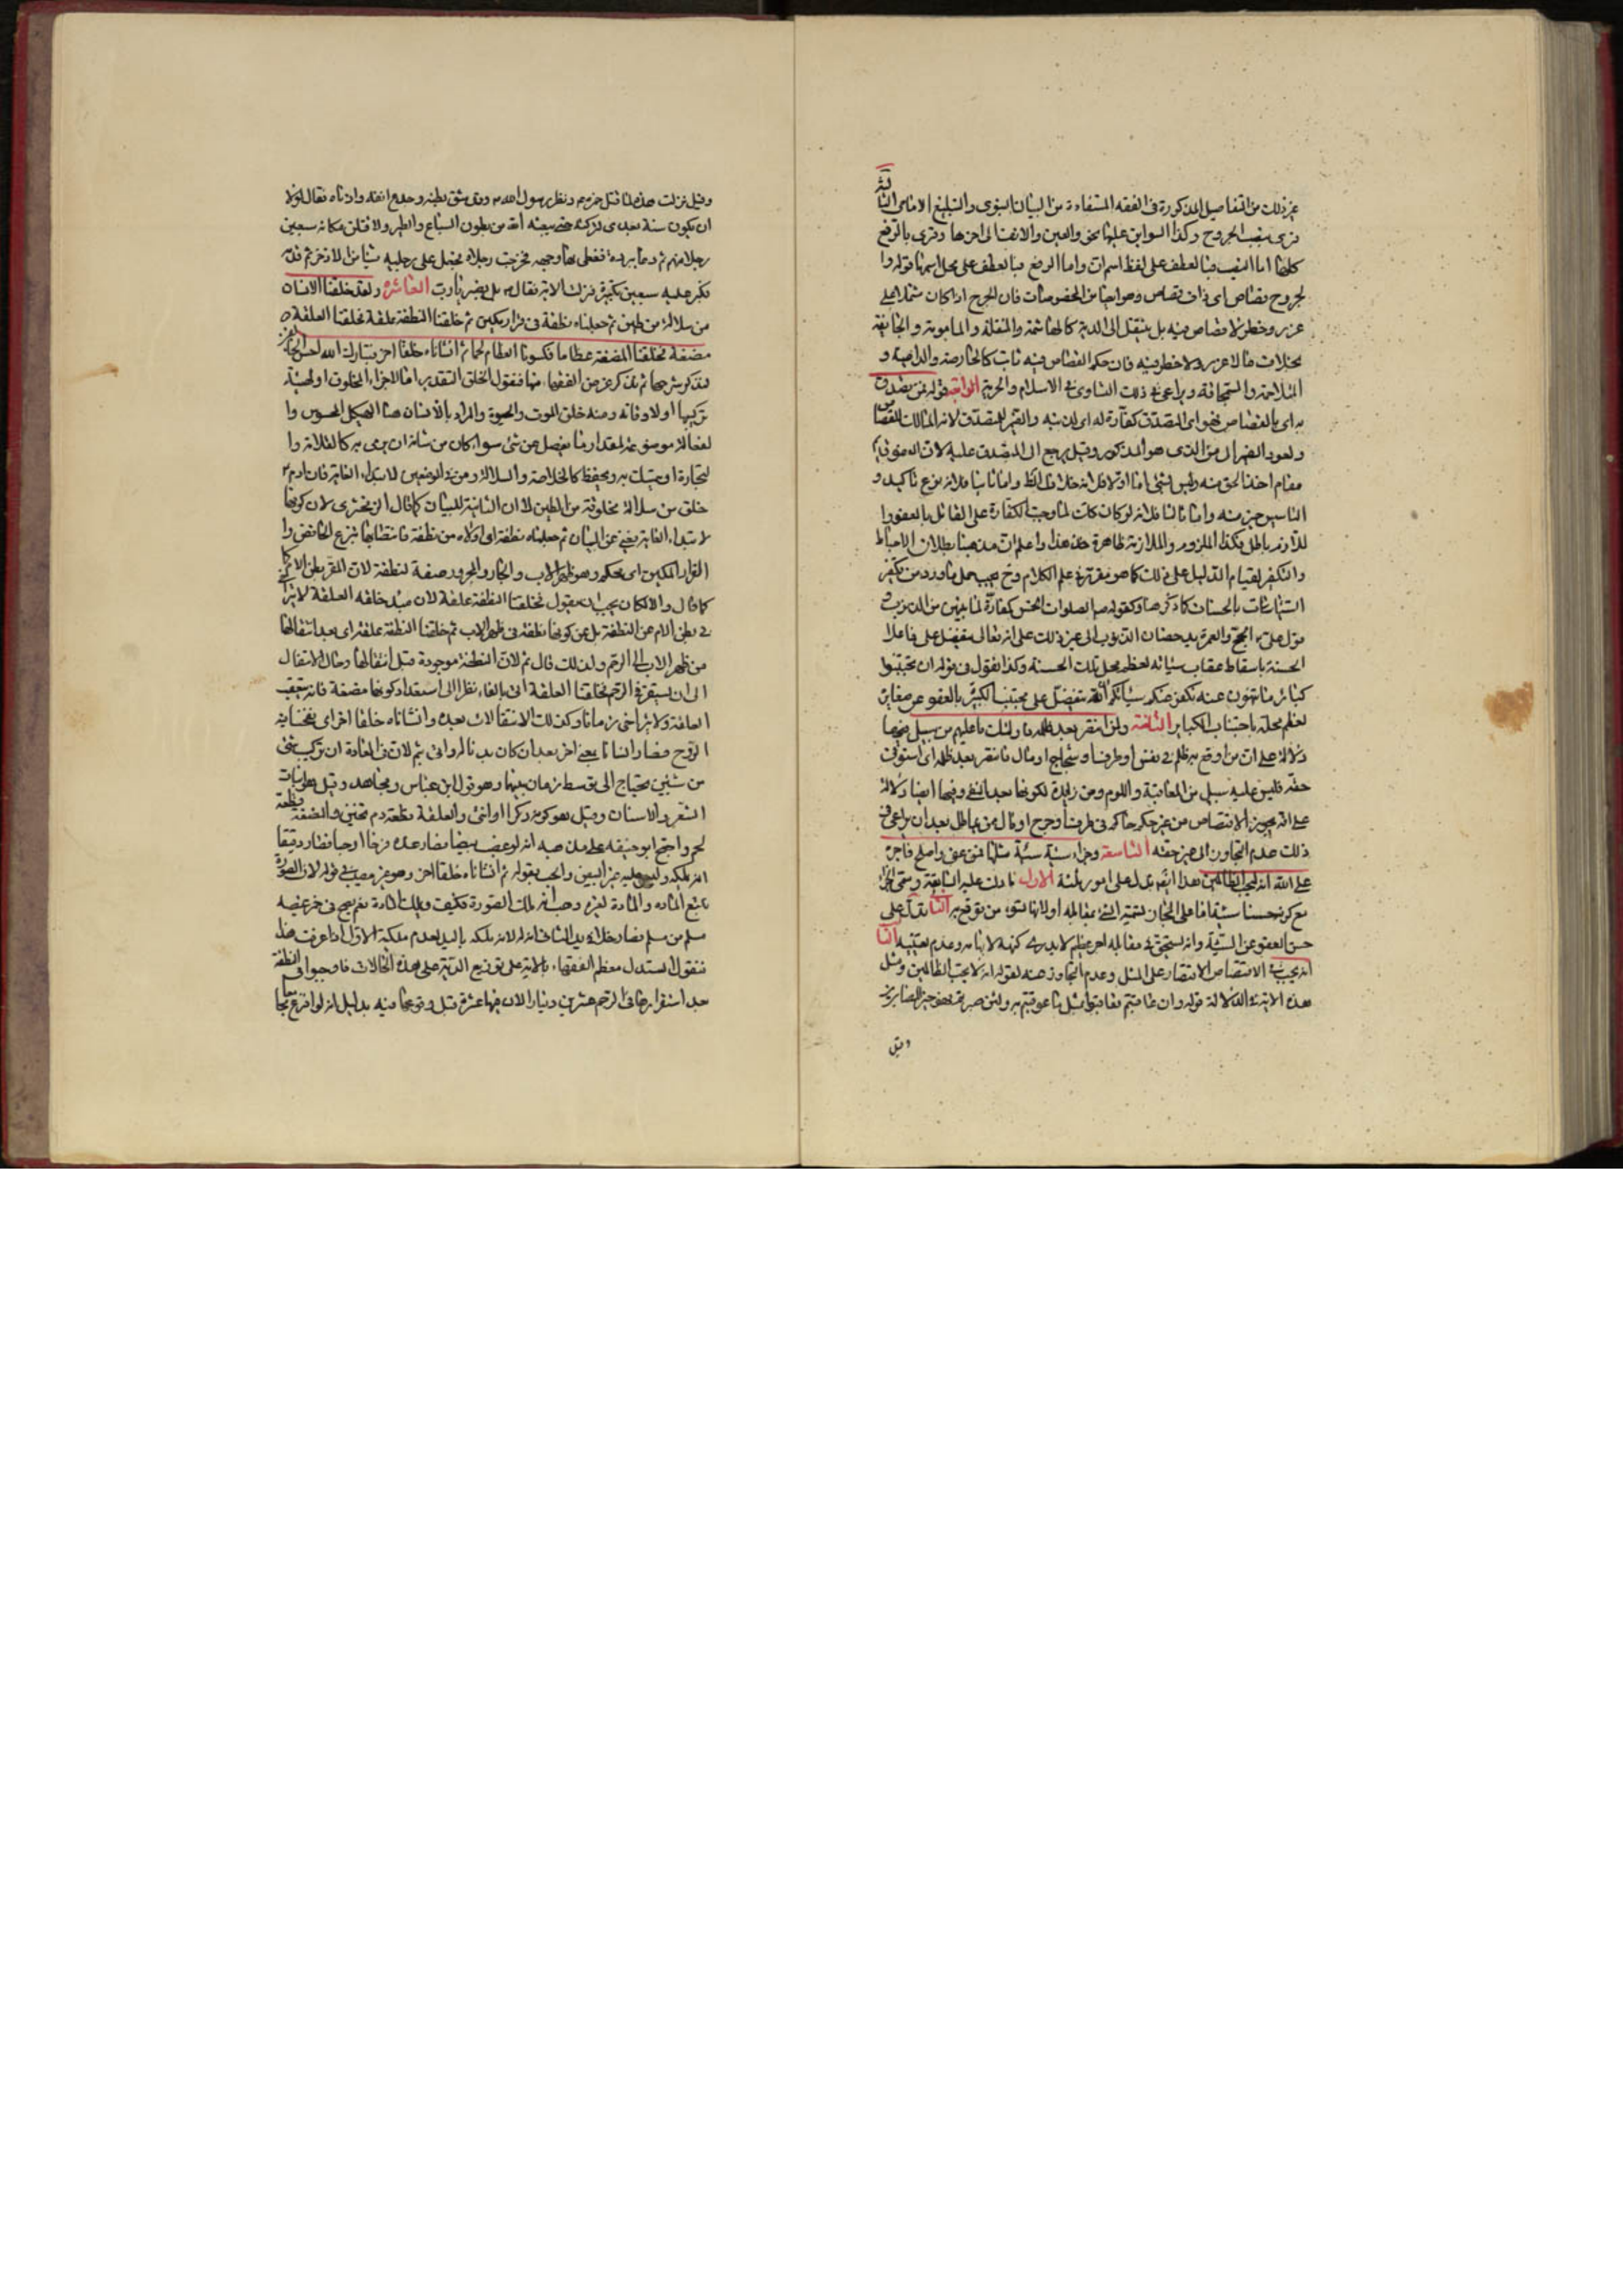 غير ذلك من التفاصيل المذكورة فى الفقه المستفادة من البيان النبوى والتبليغ الامامى الثالثة
قرى بنصب الجروح وكذا السوابق عليها نحو والعين والانف الى اخرها وقرى بالرفع
كلها اما النصب فبالعطف على لفظ اسم ان واما الرفع فبالعطف على محل اسمها قوله وا
لجروح قصاص اى ذات قصاص وهو ايضا من المخصوصات فان الجرح اذا كان مشتملا على
غرر وخطر لا قصاص فيه بل ينتقل الى الدية كالهاشمة والمنقلة والمامومة والجايفة
بخلاف ما لا غرر ولا خطر فيه فان حكم القصاص فيه ثابت كالحارصة والدامية و
المتلاحمة والسمحاقة ويراعى فى ذلك التساوى فى الاسلام والحرية الرابعة قوله فمن تصدق
به اى بالقصاص فهو اى التصدق كفارة له اى لذنبه والضمير للمتصدق لانه المالك للقصاص
ولعود الضمير الى من الذى هو المذكور وقيل يرجع الى المتصدق عليه لان
مقام اخذ الحق منه وليس بشئ اما اولا فلانه خلاف الظ واما ثانيا فلانه نوع تاكيد و
التاسيس خير منه واما ثالثا فلانه لو كان كان لما وجبت الكفارة على القاتل بالعفو وا
للازم باطل فكذا الملزوم والملازمة ظاهرة هذا واعلم ان مذهبنا بطلان الاحباط
والتكفير لقيام الدليل على ذلك كما هو مقرر فى علم الكلام وح يجب حمل ما ورد من تكفير
السيئات بالحسنات كما ذكر هنا وكقوله ص الصلوات الخمس كفارة لما بينهن من الذنوب و
قول على ع الحج والعمرة يدحضان الذنوب الى غير ذلك على انه تعالى يتفضل على فاعل
الحسنة باسقاط عقاب سيئاته لعظم محل تلك الحسنة وكذا نقول فى قوله ان تجتنبوا
كبائر ما تنهون عنه نكفر عنكم سيئاتكم انه يتفضل على مجتنب الكبير بالعفو عن صغاير
لعظم محله باجتناب الكباير الثامنة ولمن انتصر بعد ظلمه فاولئك ما عليهم من سبيل فيها
دلالة على ان من اوقع به ظلم فى نفس او طرف او شجاج او مال فانتصر بعد ظلمه اى استوفى
حقه فليس عليه سبيل من المعاتبة واللوم ومن زايدة لكونها بعد النفى وفيها ايضا دلالة
على انه يجوز الاقتصاص من غير حكم حاكم فى طرف او جرح او مال من مماطل بعد ان يراعى فى
ذلك عدم التجاوز الى غير حقه التاسعة وجزاء سيئة سيئة مثلها فمن عفى واصلح فاجره
على الله انه لا يحب الظالمين هذا ايضا يدل على امور ثلثة الاول ما دلت عليه السابقة وسمى الجزاء
مع كونه حسنا سيئة اما على المجاز لتسمية الشئ بمقابله او لانها تسوء من توقع به الثانى تدل على
حسن العفو عن السيئة وانه يستحق فى مقابله اجر عظيم لا يدرى كنهه لابهامه وعدم تعيينه الثالث
انه يجب فى الاقتصاص الاقتصار على المثل وعدم التجاوز عنه لقوله انه لا يحب الظالمين ومثل
هذه الاية فى الدلالة قوله وان عاقبتم فعاقبوا بمثل ما عوقبتم به ولئن صبرتم لهو خير للصابرين
وقيل
وقيل نزلت هذه لما قتل حمزة ونظر رسول الله ص وقد شق بطنه وجدع انفه واذناه فقال لولا
ان يكون سنة بعدى لتركته حتى يبعثه الله من بطون السباع والطير ولاقتلن مكانه سبعين
رجلا منهم ثم دعا ببردة فغطى بها وجهه فخرجت رجلاه فجعل على رجليه شيئا من الاذخر ثم قدمه
فكبر عليه سبعين تكبيرة فنزلت الاية فقال ص بل نصبر يا رب العاشرة ولقد خلقنا الانسان
من سلالة من طين ثم جعلناه نطفة فى قرار مكين ثم خلقنا النطفة علقة فخلقنا العلقة
مضغة فخلقنا المضغة عظاما فكسونا العظام لحما ثم انشاناه خلقا اخر فتبارك الله احسن الخالقين
فنذكر شرحها ثم نذكر غرض الفقهاء منها فنقول الخلق التقدير اما لاجزاء المخلوق او لهيئة
تركيبها او لاوقاته ومنه خلق الموت والحيوة والمراد بالانسان هنا الهيكل المحسوس وا
لفعالة موضوعة لمقدار ما يفصل عن شئ سواء كان من شانه ان يرمى به كالقلامة وا
لنجارة او يتمسك به ويحفظ كالخلاصة والسلالة ومن فى الموضعين لابتداء الغاية فان ادم ع
خلق من سلالة مخلوقة من الطين لا ان الثانية للبيان كما قال الزمخشرى لان كونها
لابتداء الغاية يغنى عن البيان ثم جعلناه نطفة اى اولاده من نطفة فانتصابها بنزع الخافض وا
القرار المكين اى محكم وهو ظهر الاب والجار والمجرور صفة لنطفة لان المقر بطن الام كا
كما قال والا لكان يجب ان يقول فخلقنا النطفة علقة لان مبدء خلقه العلقة لا يتراخى
فى بطن الام عن النطفة بل عن كونها نطفة فى ظهر الاب ثم خلقنا النطفة علقة اى بعد انتقالها
من ظهر الاب الى الرحم ولذلك قال ثم لان النطفة موجودة قبل انتقالها وحال الانتقال
الى ان يستقر فى الرحم فخلقنا العلقة اتى بالفاء نظرا الى استعداد كونها مضغة فانه يتعقب
العلقة ولا يتراخى زمانا وكذلك الانتقالات بعده وانشاناه خلقا اخر اى نفخنا فيه
الروح فصار انسانا بعد ان كان واتى بثم لان فى العادة ان تركيب شئ
من شيئين يحتاج الى توسط زمان بينهما وهو قول ابن عباس ومجاهد وقيل هو نبات
الشعر والاسنان وقيل هو كونه ذكرا او انثى والعلقة قطعة دم ثخين والمضغة قطعة
لحم واحتج ابو حنيفه على مذهبه انه لو غصب بيضا فصار عنده فرخا او حبا فصار دقيقا
انه يملكه وليس عليه غير البيض والحب بقوله ثم انشاناه خلقا اخر وهو غير مصيب فى قوله لان الصورة
تابع المادة والمادة لغيره وهب انه ملك الصورة فكيف يملك المادة نعم يصح فى خمر غصبه
مسلم من مسلم فصار خلا فى يد الثانى انه له لانه بملكه باليد لعدم ملكية الاول اذا عرفت هذا
فنقول استدل معظم الفقهاء بالاية على توزيع الدية على هذه الحالات فاوجبوا فى النطفة
بعد استقرارها فى الرحم عشرين دينارا لان فيها عشرة قبل وقوعها فيه بدليل انه لو افزع مجامعا